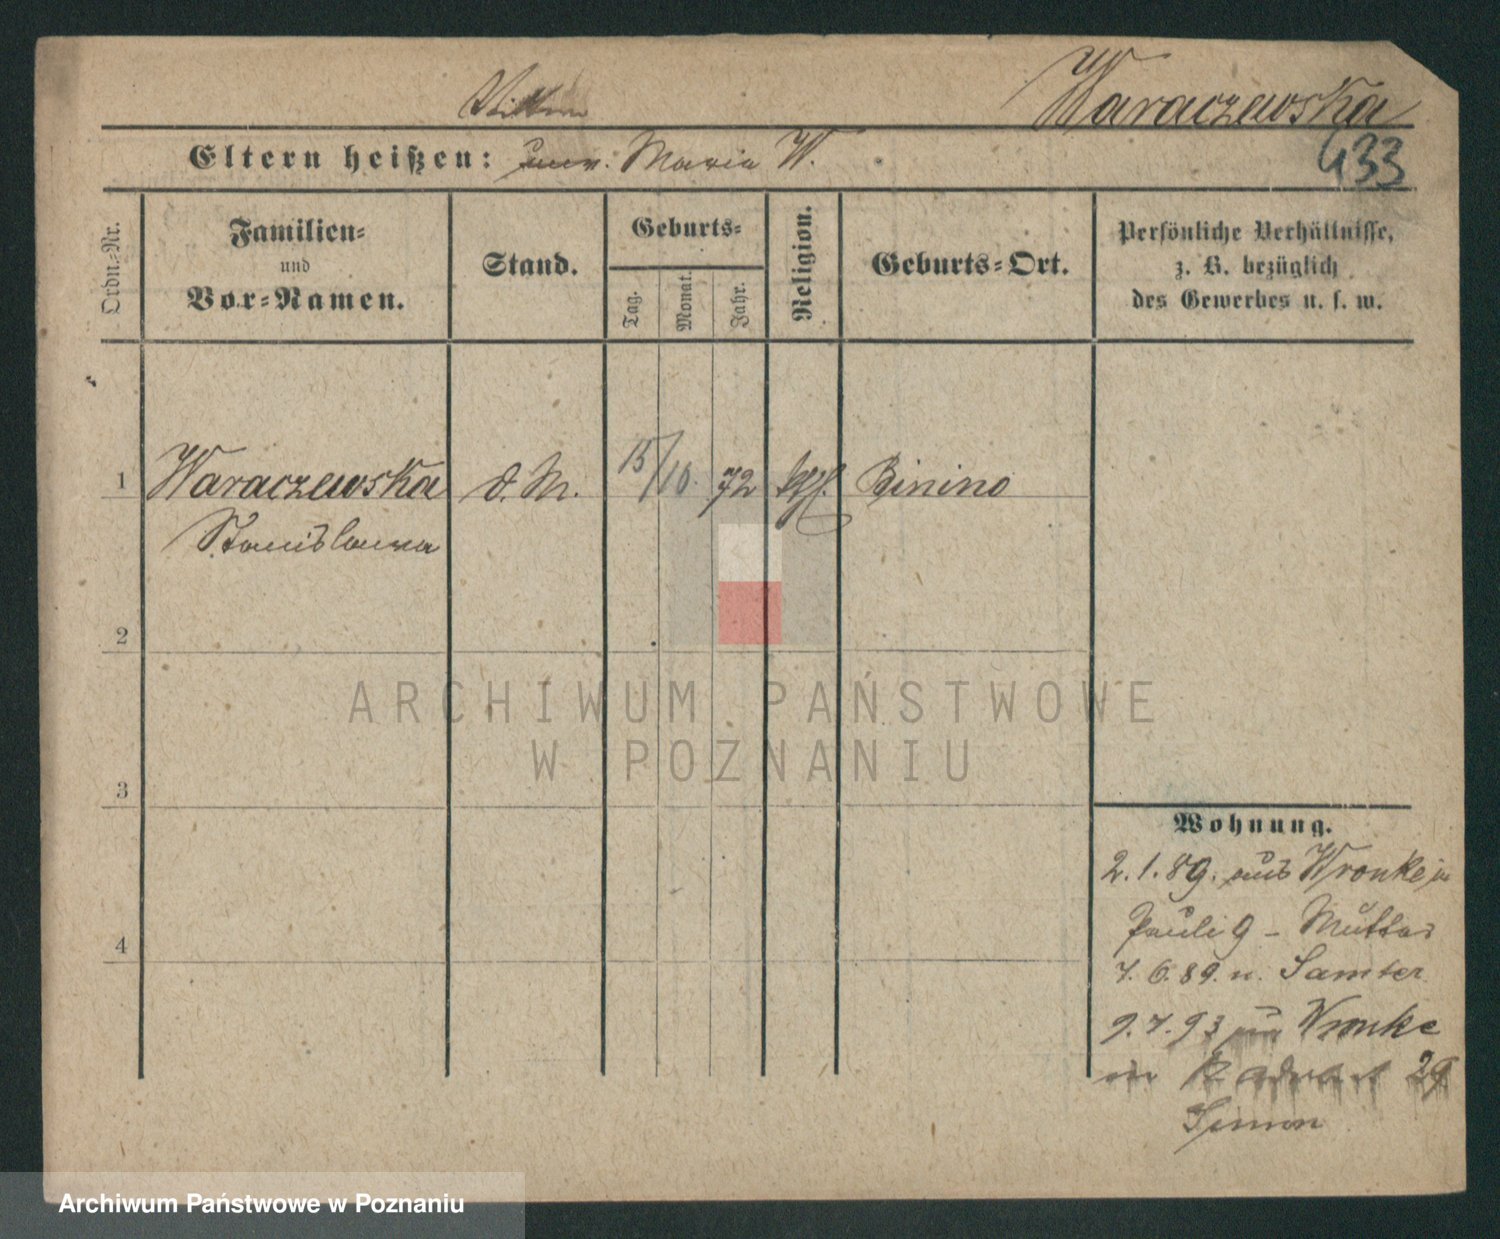 Waraczewska
Eltern heißen: unv. Maria W.
433
Ordn.-Nr.
Familien-
und
Vor-Namen.
Stand.
Geburts-
Tag.
Monat.
Jahr.
Religion.
Geburts-Ort.
Persönliche Verhältnisse,
z. B. bezüglich
des Gewerbes u. s. w.
1 Waraczewska d. M. 15/10. 72 kth. Binino
Stanislawa
2
3
4
ARCHIWUM PAŃSTWOWE
W POZNANIU
Wohnung.
2.1.89. aus Wronke in
Pauli 9 - Mutter
7.6.89. n. Samter
9.7.93 Wronke
29
Simon
Archiwum Państwowe w Poznaniu